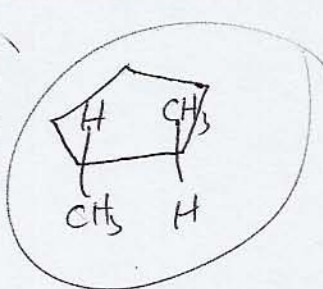 H CH₃
CH₃ H